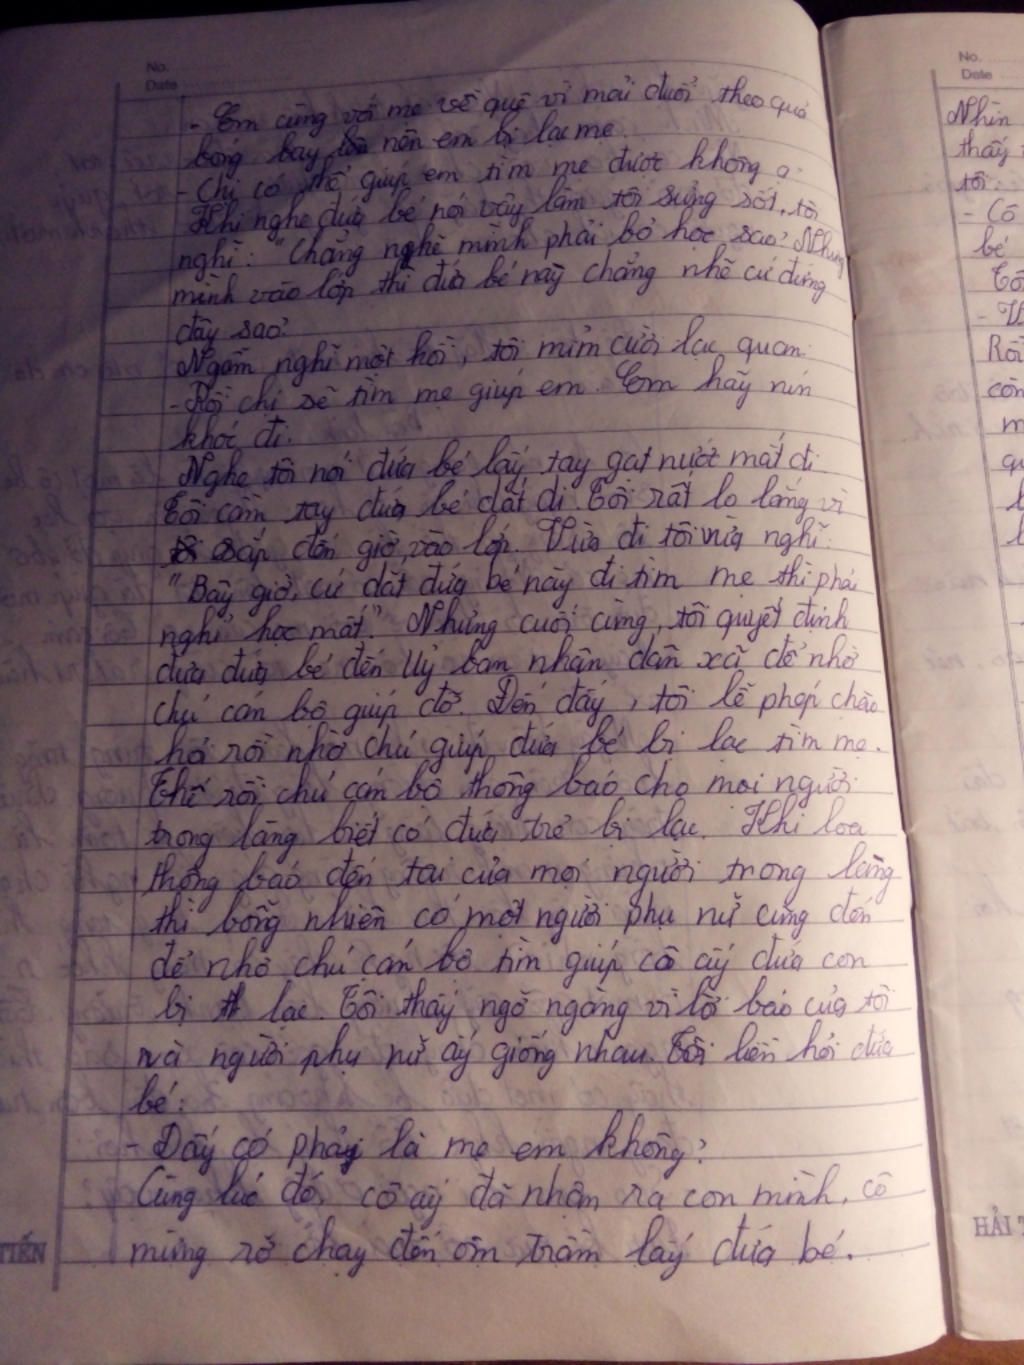 No.
Date
- Em cùng với mẹ về quê vì mải đuổi theo quả
bóng bay nên em bị lạc mẹ.
- Chị có thể giúp em tìm mẹ được không ạ.
Khi nghe đứa bé nói vậy làm tôi sửng sốt, tôi
nghĩ: "Chẳng nghẽ mình phải bỏ học sao? Nhưng
mình vào lớp thì đứa bé này chẳng nhẽ cứ đứng
đây sao?
Ngẫm nghĩ một hồi, tôi mỉm cười lạc quan.
- Rồi chị sẽ tìm mẹ giúp em. Em hãy nín
khóc đi.
Nghe tôi nói đứa bé lấy tay gạt nước mắt đi
Tôi cầm tay đứa bé dắt đi. Tôi rất lo lắng vì
sắp đến giờ vào lớp. Vừa đi tôi vừa nghĩ:
"Bây giờ, cứ dắt đứa bé này đi tìm mẹ thì phải
nghỉ học mất." Nhưng cuối cùng, tôi quyết định
đưa đứa bé đến Uỷ ban nhân dân xã để nhờ
chú cán bộ giúp đỡ. Đến đấy, tôi lễ phép chào
hỏi rồi nhờ chú giúp đứa bé bị lạc tìm mẹ.
Thế rồi, chú cán bộ thông báo cho mọi người
trong làng biết có đứa trẻ bị lạc. Khi loa
thông báo đến tai của mọi người trong làng
thì bỗng nhiên có một người phụ nữ cũng đến
để nhờ chú cán bộ tìm giúp cô ấy đứa con
bị lạc. Tôi thấy ngỡ ngàng vì lời báo của tôi
và người phụ nữ ấy giống nhau. Tôi liền hỏi đứa
bé:
- Đấy có phải là mẹ em không?
Cùng lúc đó, cô ấy đã nhận ra con mình, cô
mừng rỡ chạy đến ôm trầm lấy đứa bé.
TIẾN
No.
Date
Nhìn
thấy
tôi.
- Cô
bé
Rồi
HẢI